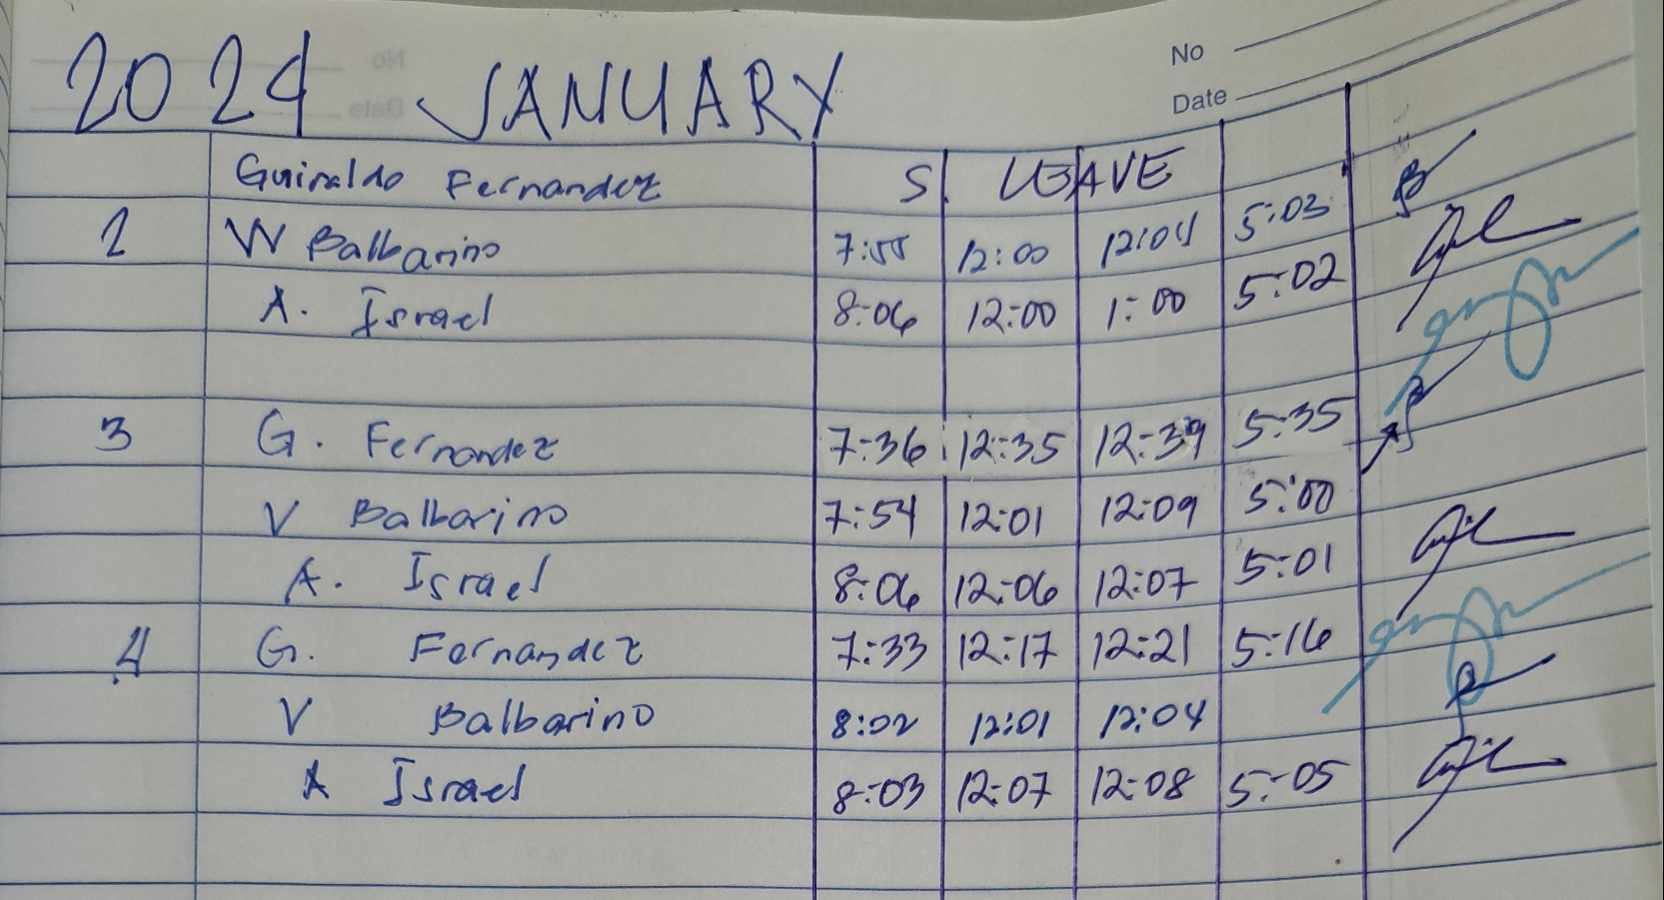 No
Date
2024 JANUARY
Guiraldo Fernandez S. LEAVE
2 W Balbarino 7:55 12:00 12:04 5:03
A. Israel 8:06 12:00 1:00 5:02
3 G. Fernandez 7:36 12:35 12:39 5:35
V Balbarino 7:54 12:01 12:09 5:00
A. Israel 8:06 12:06 12:07 5:01
4 G. Fernandez 7:33 12:17 12:21 5:16
V Balbarino 8:02 12:01 12:04
A Israel 8:03 12:07 12:08 5:05